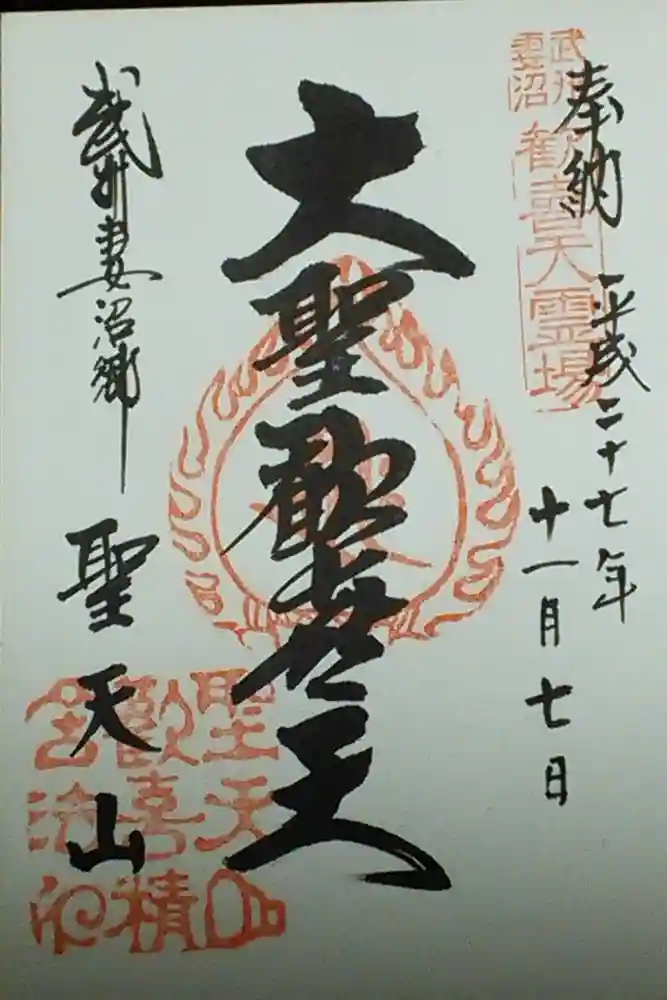 奉納 平成二十七年
十一月七日
武州
妻沼
歓喜天霊場
大聖歓喜天
武州妻沼郷
聖天山
聖天山
歓喜精
舎法印